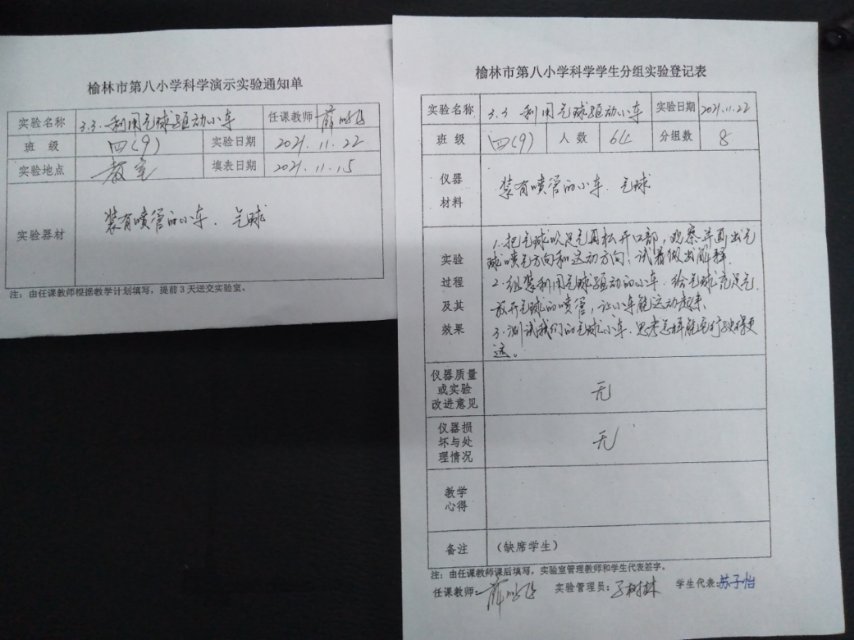 榆林市第八小学科学演示实验通知单
实验名称 3.3 利用气球驱动小车 任课教师 薛
班 级 四(9) 实验日期 2021.11.22
实验地点 教室 填表日期 2021.11.15
实验器材 装有喷管的小车、气球
注：由任课教师根据教学计划填写，提前3天送交实验室。
榆林市第八小学科学学生分组实验登记表
实验名称 3.3 利用气球驱动小车 实验日期 2021.11.22
班 级 四(9) 人 数 64 分组数 8
仪器
材料
装有喷管的小车、气球
实验
过程
及其
效果
1.把气球吹足气再松开口部，观察并画出气
球喷气方向和运动方向，试着做出解释。
2.组装利用气球驱动的小车，给气球充足气，
放开气球的喷管，让小车能运动起来。
3.测试我们的气球小车，思考怎样能行驶得更
远。
仪器质量
或实验
改进意见
无
仪器损
坏与处
理情况
无
教学
心得
备注 （缺席学生）
注：由任课教师课后填写，实验室管理教师和学生代表签字。
任课教师： 薛 实验管理员： 树林 学生代表： 苏子怡